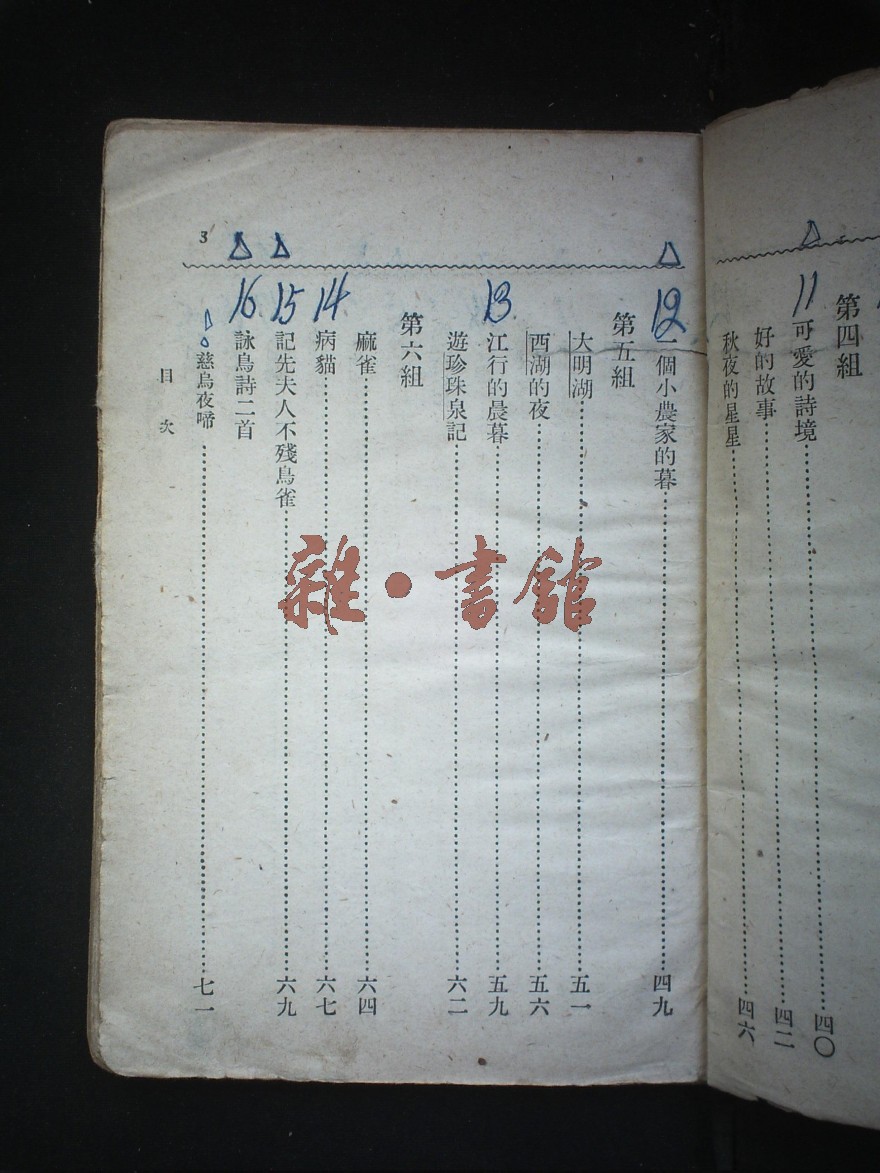 第四組
11 可愛的詩境……四〇
好的故事……四二
秋夜的星星……四六
12 一個小農家的暮……四九
第五組
大明湖……五一
西湖的夜……五六
13 江行的晨暮……五九
遊珍珠泉記……六二
第六組
麻雀……六四
14 病貓……六七
15 記先夫人不殘鳥雀……六九
16 詠鳥詩二首
慈烏夜啼……七一
目次
3
雜·書館